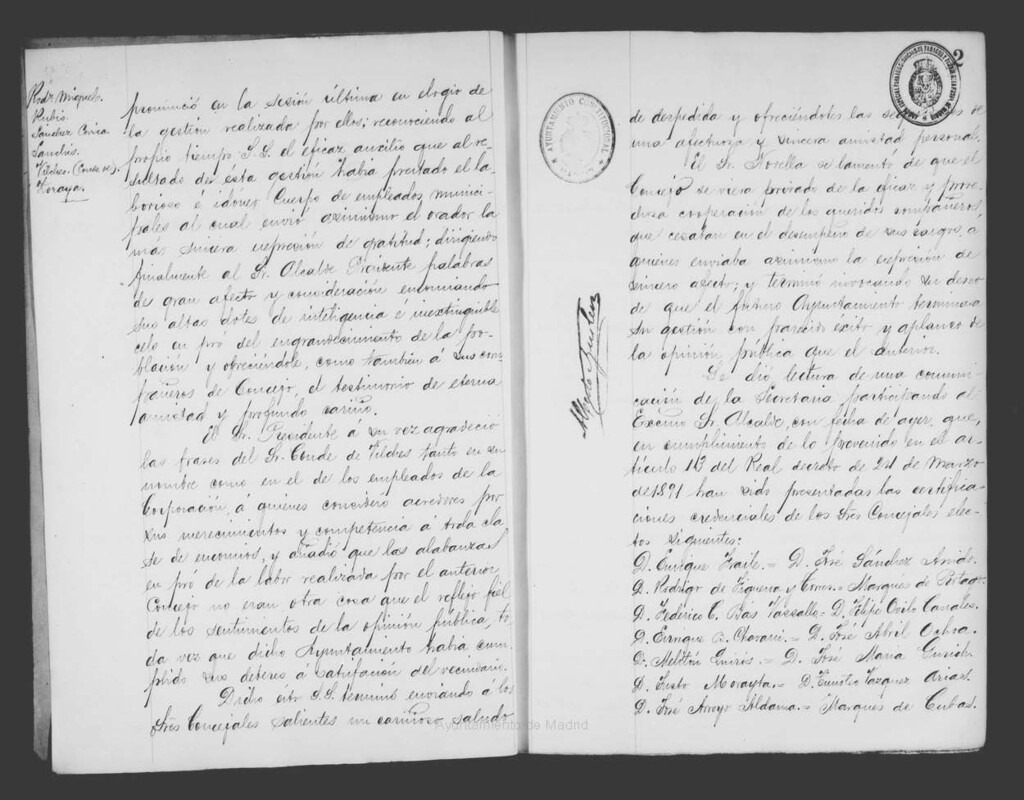 Rodz Miguel.
Rubio
Sanchez Covisa
Sanchis.
Vilches. (Conde de).
Zoraya.
pronunció en la sesión última en elogio de
la gestión realizada por ellos; reconociendo al
propio tiempo S.S. el eficaz auxilio que al re-
sultado de esta gestión habia prestado el la-
borioso e idoneo Cuerpo de empleados munici-
pales al cual envió asimismo el orador la
más sincera expresión de gratitud; dirigiendo
finalmente al Sr. Alcalde Presidente palabras
de gran afecto y consideración encomiando
sus altas dotes de inteligencia e inextinguible
celo en pró del engrandecimiento de la po-
blación y ofreciéndole, como también á sus com-
pañeros de Concejo, el testimonio de eterna
amistad y profundo cariño.
El Sr. Presidente á su vez agradeció
las frases del Sr. Conde de Vilches tanto en su
nombre como en el de los empleados de la
Corporación, á quienes consideró acredores por
sus merecimientos y competencia á toda cla-
se de encomios, y añadió que las alabanzas
en pró de la labor realizada por el anterior
Concejo no eran otra cosa que el reflejo fiel
de los sentimientos de la opinión pública, to-
da vez que dicho Ayuntamiento habia cum-
plido sus deberes á satisfación del vecindario.
Dicho esto S.S. terminó enviando á los
Sres Concejales salientes un cariñoso saludo
2
AYUNTAMIENTO CONSTITUCIONAL
de despedida y ofreciéndoles las de
una afectuosa y sincera amistad personal.
El Sr. Novella se lamentó de que el
Concejo se viera privado de la eficaz y prove-
chosa cooperación de los queridos compañeros
que cesaban en el desempeño de sus cargos, á
quienes enviaba asimismo la expresión de
sincero afecto; y terminó invocando su deseo
de que el futuro Ayuntamiento terminara
su gestión con parecido éxito y aplauso de
la opinión pública que el anterior.
Se dió lectura de una comuni-
cación de la Secretaría participando al
Excmo Sr. Alcalde, con fecha de ayer, que,
en cumplimiento de lo prevenido en el ar-
tículo 113 del Real decreto de 24 de Marzo
de 1891 han sido presentadas las certifica-
ciones credenciales de los Sres Concejales elec-
tos siguientes:
D. Enrique Fraile. = D. José Sánchez
D. Rodrigo de Figueroa y Torres = Marqués de Portago.
D. Federico C. Bas Vassallo = D. Felipe Ovilo Canales.
D. Enrique G. = D. José Abril Ochoa.
D. Melitón = D. José Maria
D. Justo Morayta. = D. Emilio Vazquez Arias.
D. José Arroyo Aldama. = Marqués de Cubas.
Ayuntamiento de Madrid